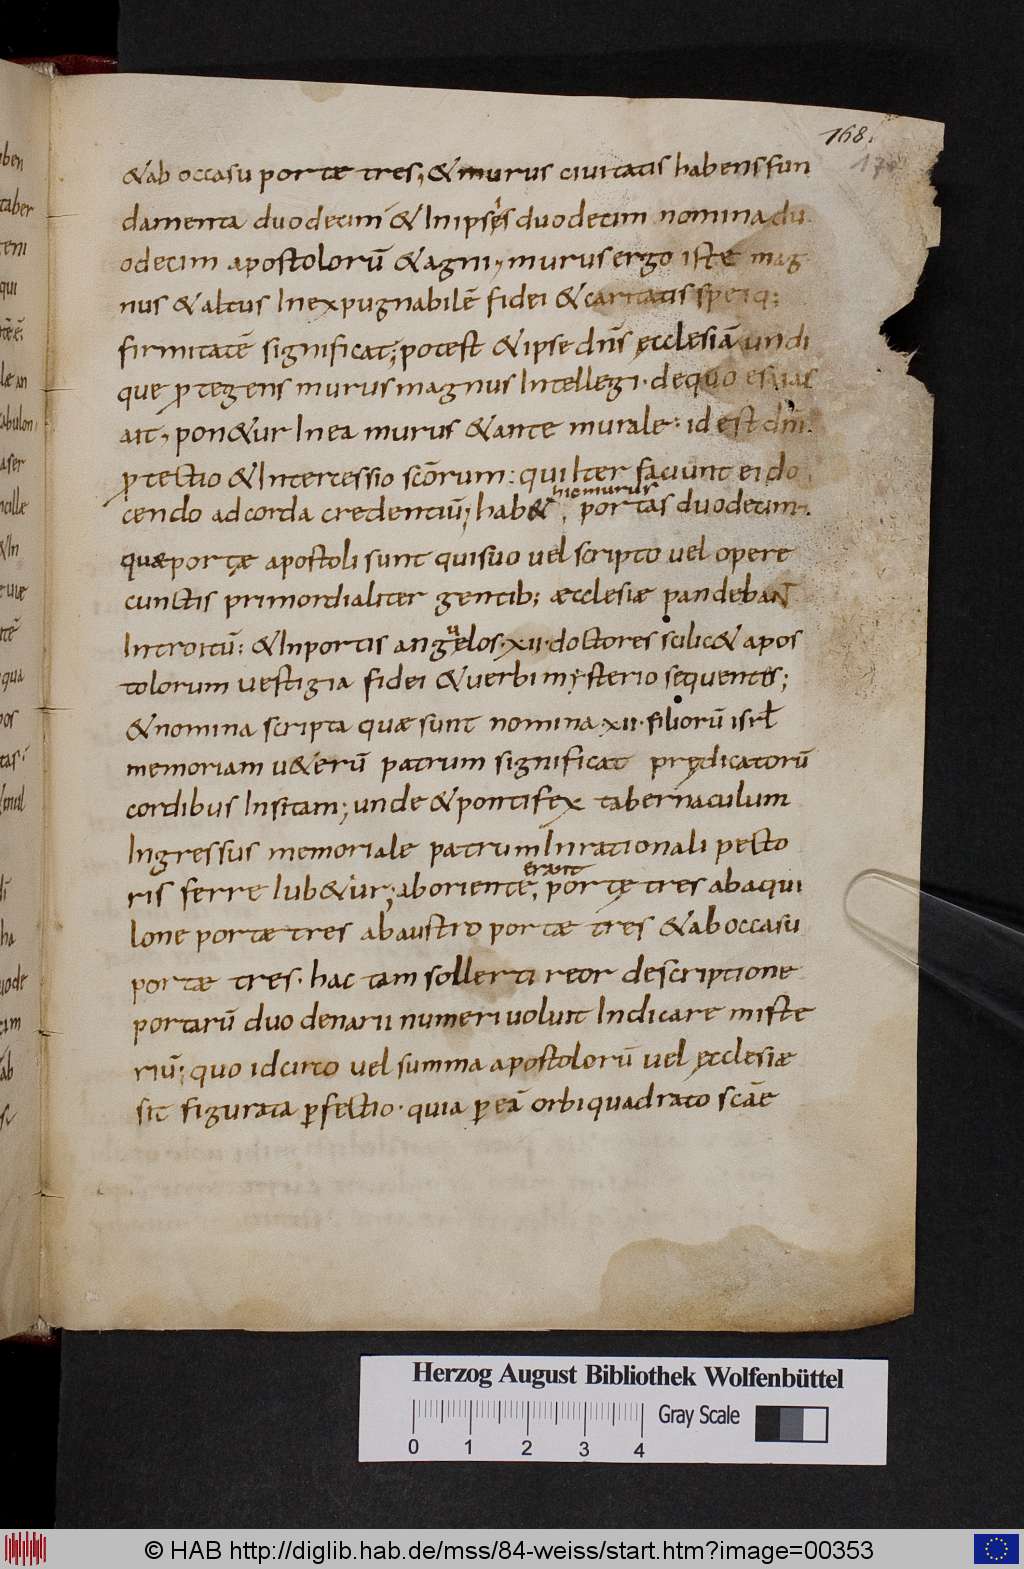 168.
& ab occasu portæ tres, & murus ciuitatis habens fun
damenta duodecim & In ipsis duodecim nomina du
odecim apostolorū & agni, murus ergo iste mag
nus & altus Inexpugnabilē fidei & caritatis speiq;
firmitatē significat; potest & ipse dn̄s ęcclesiā undi
que ꝓtegens murus magnus Intellegi· de quo esaias
ait, pon&ur In ea murus & ante murale· id est dn̄i
ꝓtectio & Intercessio scōrum: qui Iter faciunt ei do
cendo ad corda credentiū; hab& hic murus portas duodecim·
quæ portæ apostoli sunt qui suo uel scripto uel opere
cunctis primordialiter gentib; æcclesiæ pandebant
Introitū: & In portis anguelos·xii·doctores scilic& apos
tolorum uestigia fidei & uerbi mysterio sequentes;
& nomina scripta quæ sunt nomina·xii·filiorū isrł
memoriam u&erū patrum significat prędicatorū
cordibus Insitam; unde & pontifex tabernaculum
Ingressus memoriale patrum In rationali pecto
ris ferre Iub&ur; ab oriente erant portę tres ab aqui
lone portæ tres ab austro portæ tres & ab occasu
portæ tres· hac tam sollerti reor descriptione
portarū duodenarii numeri uoluit Indicare miste
riū; quo idcirco uel summa apostolorū uel ęcclesiæ
sit figurata ꝑfectio· quia ꝑ eā orbi quadrato scāe
Herzog August Bibliothek Wolfenbüttel
Gray Scale
0 1 2 3 4
© HAB http://diglib.hab.de/mss/84-weiss/start.htm?image=00353